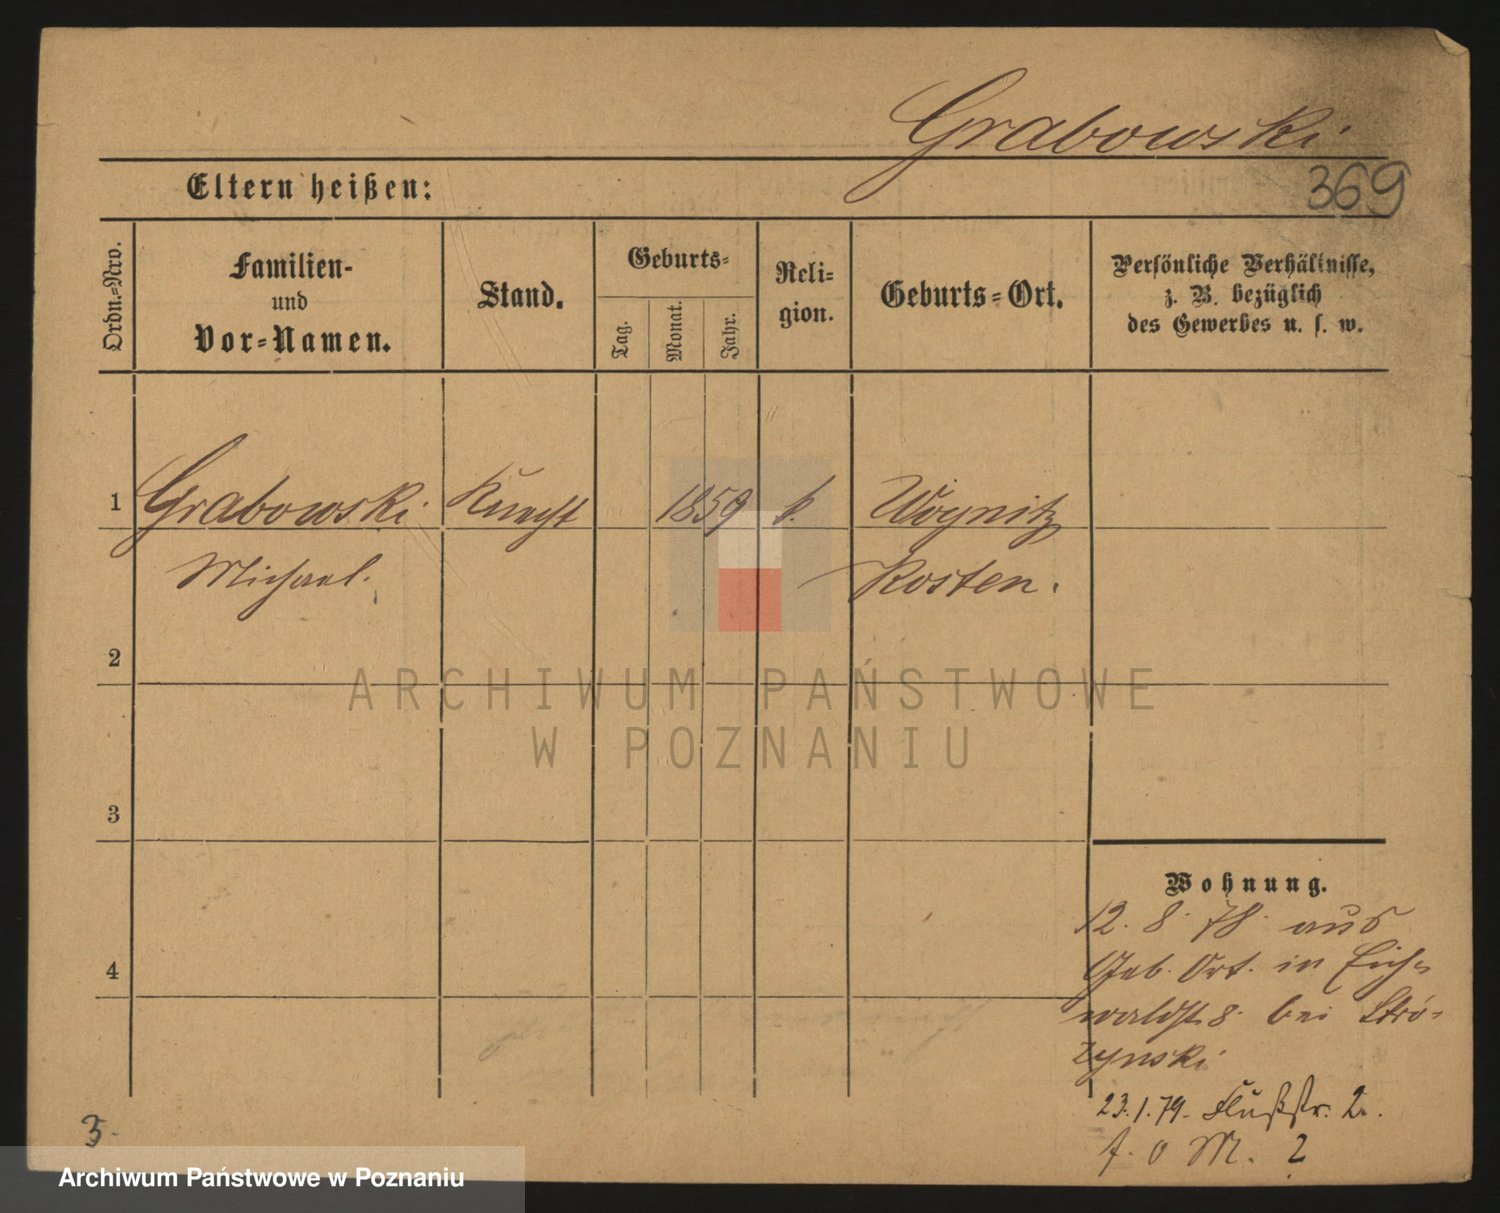 Grabowski
369
Eltern heißen:
Ordn.=Nro.
Familien-
und
Vor=Namen.
Stand.
Geburts=
Tag.
Monat.
Jahr.
Reli=
gion.
Geburts=Ort.
Persönliche Verhältnisse,
z. B. bezüglich
des Gewerbes u. s. w.
1
Grabowski
Michael.
Knecht
1859
k.
Woynitz
Kosten.
2
3
4
Wohnung.
12. 8. 78. aus
Geb. Ort. in Eich=
waldst. 8. bei Stró=
zynski
23. 1. 79. Flußstr. 2.
M. 2
3.
ARCHIWUM PAŃSTWOWE
W POZNANIU
Archiwum Państwowe w Poznaniu